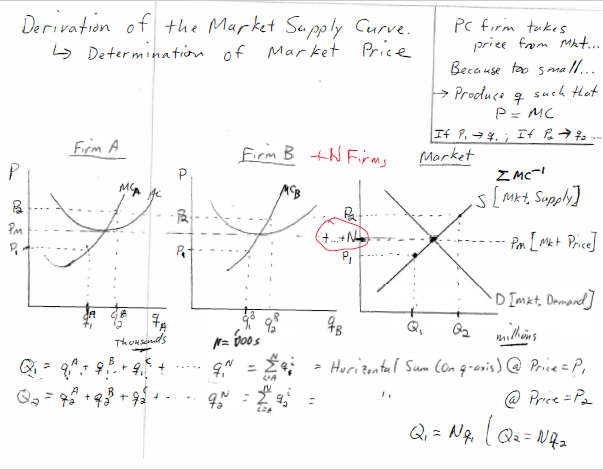 Derivation of the Market Supply Curve.
↳ Determination of Market Price
PC firm takes
price from Mkt...
Because too small...
→ Produce q such that
P = MC
If P₁ → q₁ ; If P₂ → q₂ ...
Firm A
Firm B
+N Firms
Market
P
MC_A
AC
P₂
Pm
P₁
q₁ᴬ
q₂ᴬ
q_A
Thousands
P
MC_B
P₂
P₁
q₁ᴮ
q₂ᴮ
q_B
N = 000s
+...+N
Σ MC⁻¹
S [Mkt. Supply]
P₂
P₁
Pm [Mkt Price]
D [Mkt. Demand]
Q₁
Q₂
millions
Q₁ = q₁ᴬ + q₁ᴮ + q₁ᶜ + ..... q₁ᴺ = Σ q₁ⁱ = Horizontal Sum (on q-axis) @ Price = P₁
Q₂ = q₂ᴬ + q₂ᴮ + q₂ᶜ + ..... q₂ᴺ = Σ q₂ⁱ = " @ Price = P₂
Q₁ = Nq₁ ( Q₂ = Nq₂